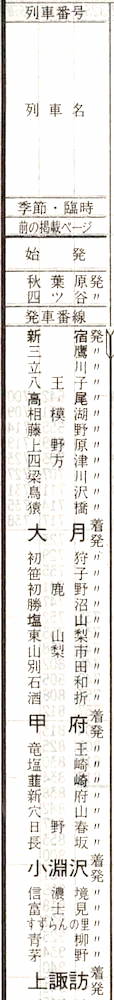 列車番号
列車名
季節・臨時
前の掲載ページ
始発
秋葉原発
四ツ谷〃
発車番線
新宿発
三鷹〃
立川〃
八王子〃
高尾〃
相模湖〃
藤野〃
上野原〃
四方津〃
梁川〃
鳥沢〃
猿橋〃
大月着
発
初狩〃
笹子〃
初鹿野〃
勝沼〃
塩山〃
東山梨〃
山梨市〃
別田〃
石和〃
酒折〃
甲府着
発
竜王〃
塩崎〃
韮崎〃
新府〃
穴山〃
日野春〃
長坂〃
小淵沢着
発
信濃境〃
富士見〃
すずらんの里〃
青柳〃
茅野〃
上諏訪着
発